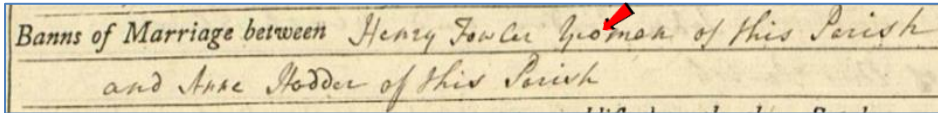 Banns of Marriage between Henry Fowler Yeoman of this Parish
and Anne Hodder of this Parish